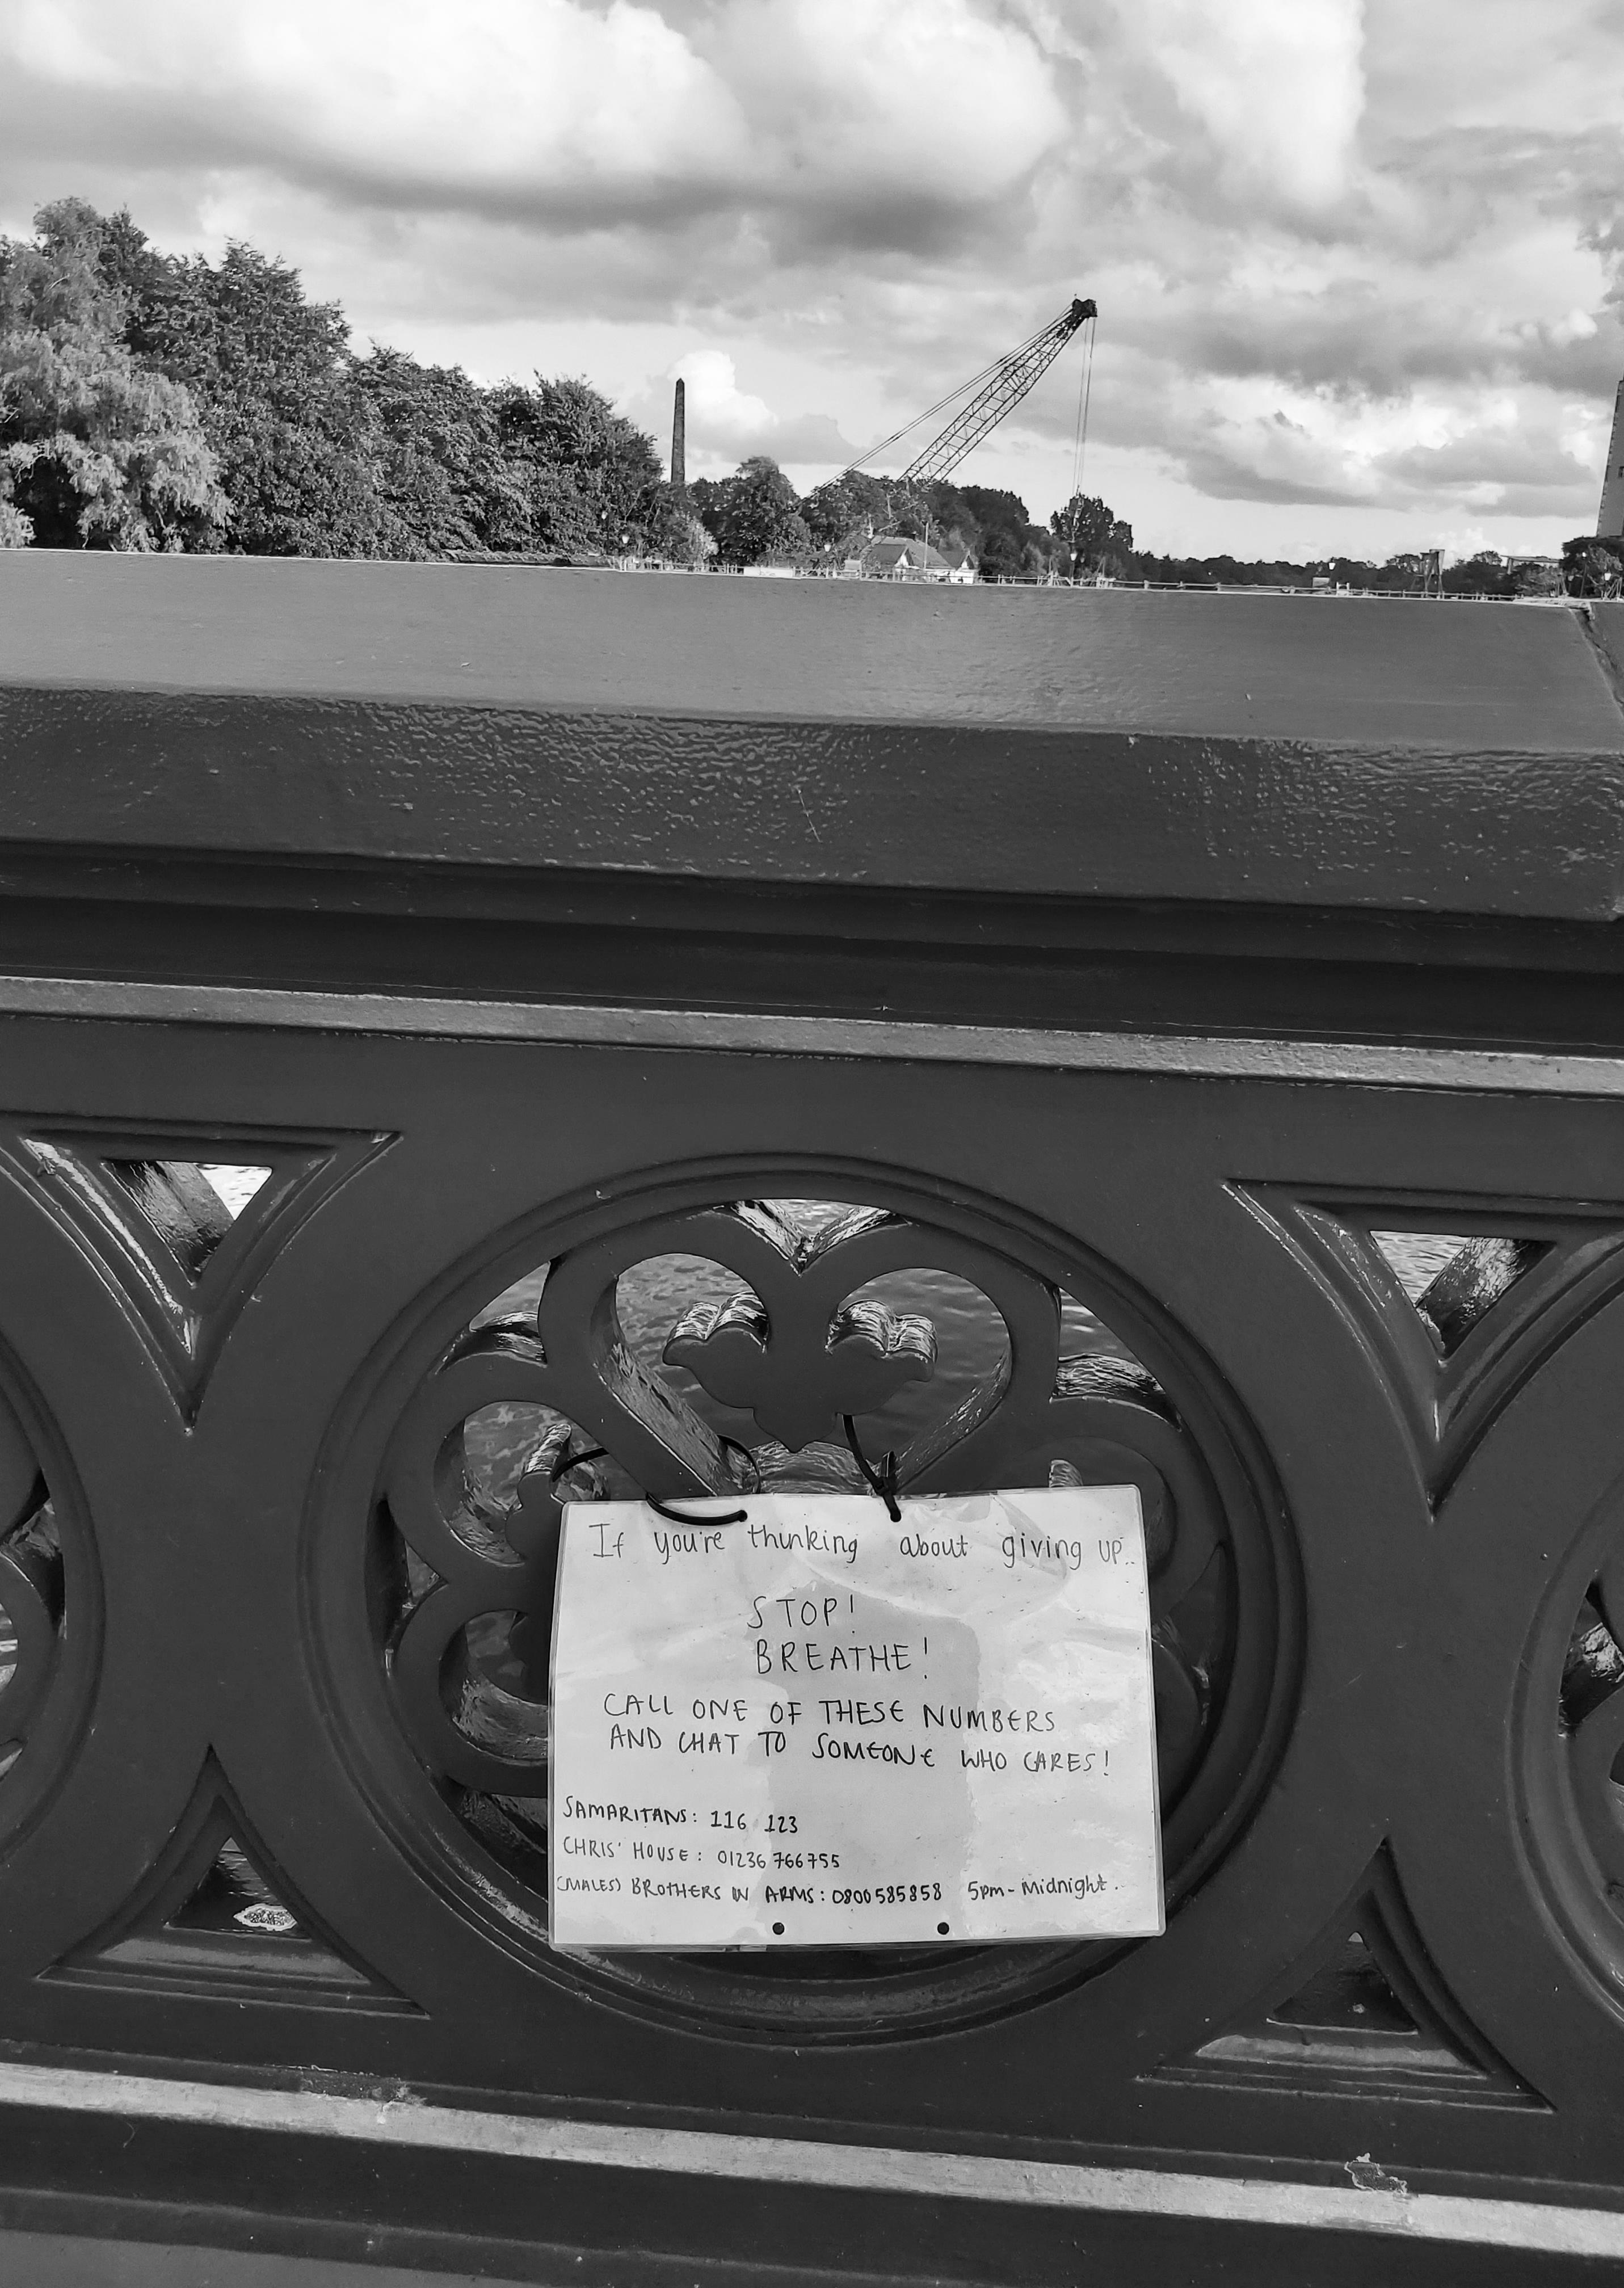 If you're thinking about giving up..
STOP!
BREATHE!
CALL ONE OF THESE NUMBERS
AND CHAT TO SOMEONE WHO CARES!
SAMARITANS: 116 123
CHRIS' HOUSE: 01236 766755
(MALES) BROTHERS IN ARMS: 0800585858 5pm-Midnight.